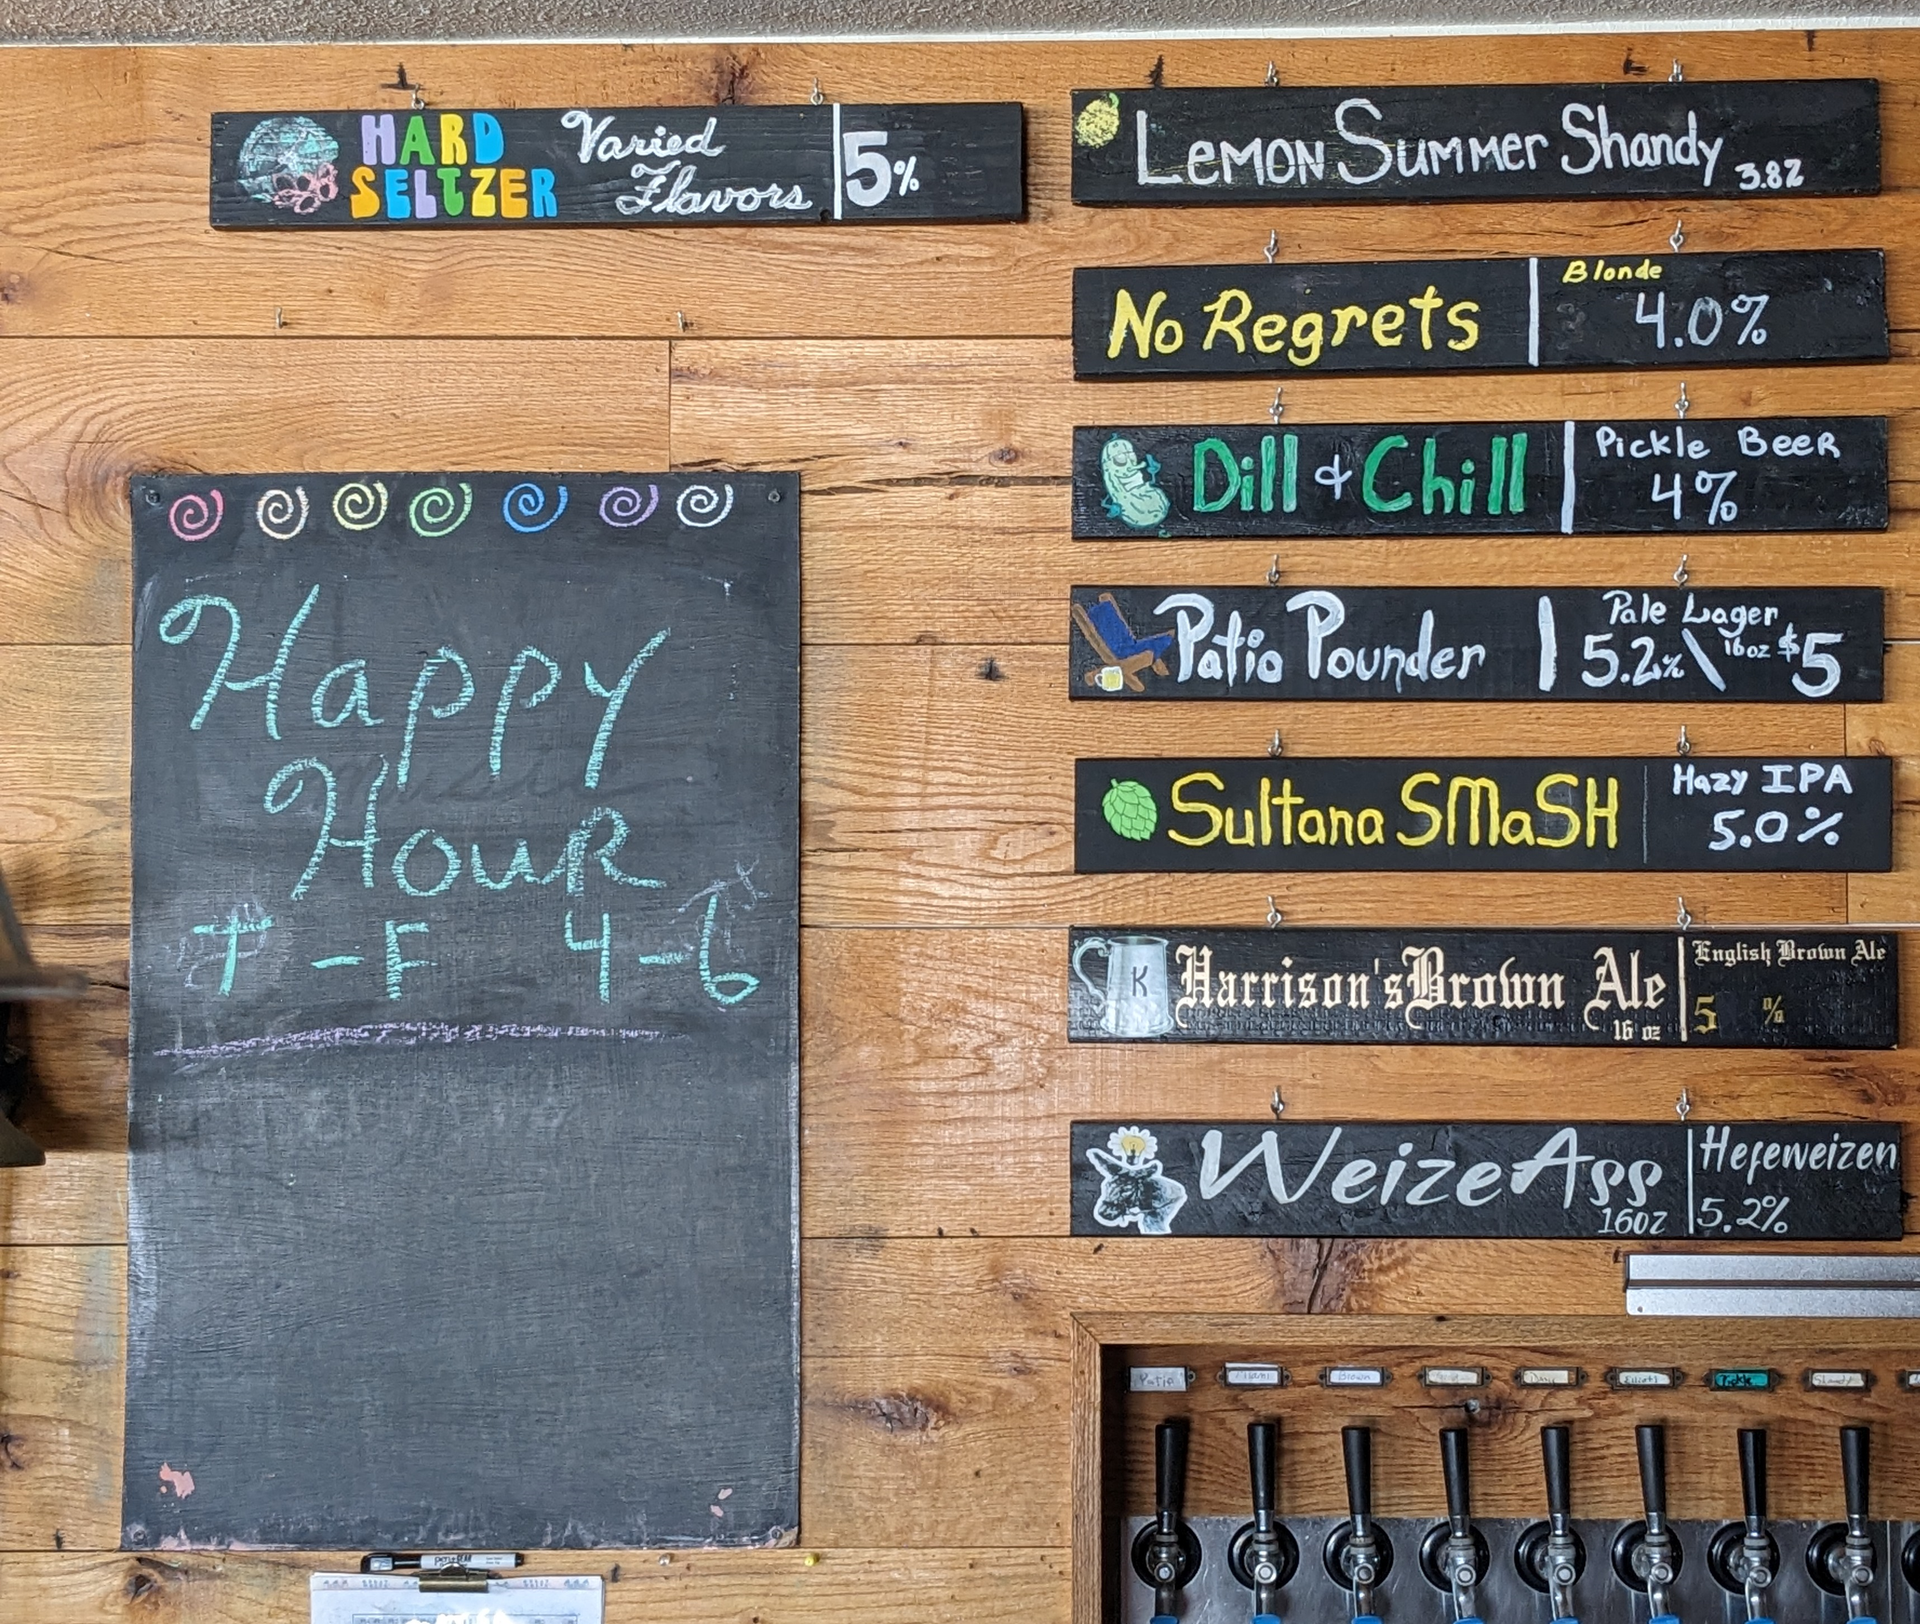 HARD SELTZER Varied Flavors 5%
Lemon Summer Shandy 3.8%
No Regrets Blonde 4.0%
Dill + Chill Pickle Beer 4%
Patio Pounder Pale Lager 5.2% \ 16oz $5
Sultana SMaSH Hazy IPA 5.0%
K Harrison's Brown Ale 16 oz English Brown Ale 5 %
WeizeAss 16oz Hefeweizen 5.2%
Happy
Hour
T - F 4-6
Patio Brown Elliott Pickle Shandy